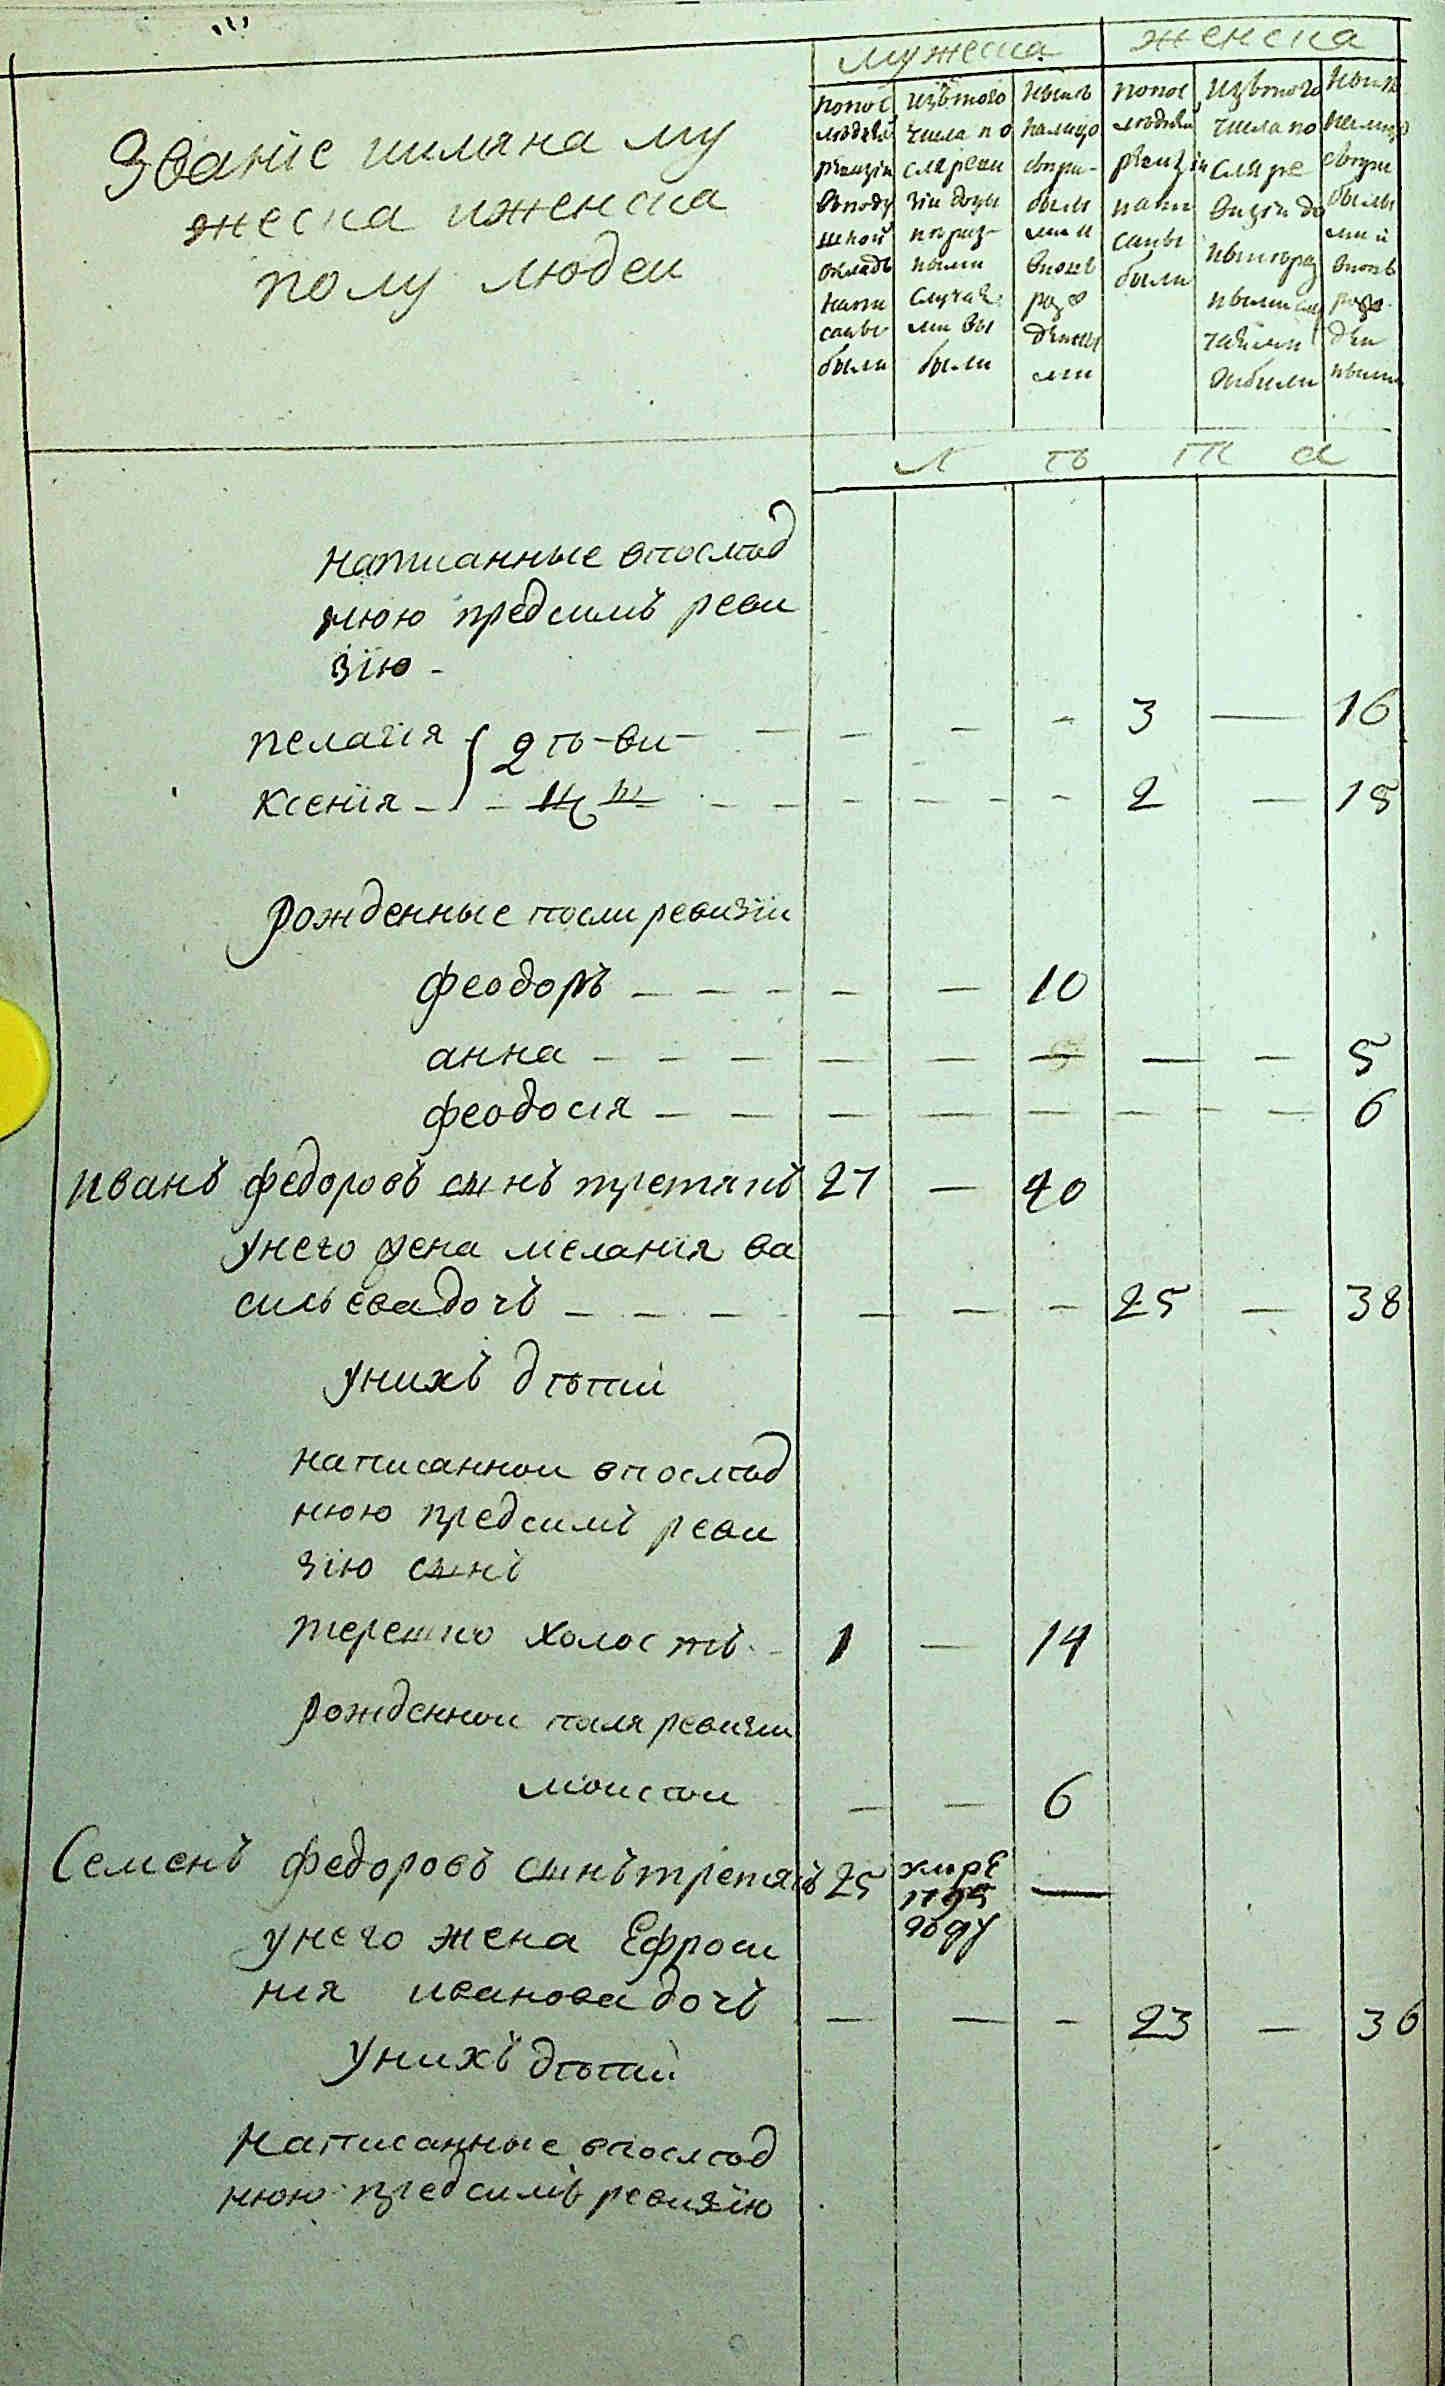 мужеска
женска
Званіе иимяна му
жеска иженска
полу людеи
попос
ледней
ревизіи
вподу
шной
окладъ
напи
саны
были
изътого
числа по
сляреви
зіи доны
нѣ раз
ными
случая
ми вы
были
нынѣ
налицо
были
ми и
вновь
розо
денны
ми
попос
ледней
ревизіи
напи
саны
были
изътого
числа по
сля ре
визіи до
нынѣ раз
ными слу
чаями
выбыли
нынѣ
налицо
были
ми и
вновь
рожде
ден
ными
л ѣ т а
написанные впослѣд
нюю предсимъ реви
зію -
пелагія 2 ѣ-ви - - - - - 3 — 16
ксенія - - - - - - - - 2 — 15
рожденные посли ревизіи
феодоръ - - - - — 10
анна - - - — — — — - 5
феодосія - - - - - - - - 6
иванъ федоровъ сынъ третякъ 27 — 40
унего жена меланія ва
сильевадочь - - - - - - 25 — 38
унихъ дѣтии
написаннои впослѣд
нюю предсимъ реви
зію сынъ
терешко холостъ - 1 — 14
рожденнои посля ревизіи
моисѣи - - 6
Семенъ федоровъ сынъ третякъ 25 умре —
1795
году
унего жена Ефроси
нія иванова дочь - - - 23 — 36
унихъ дѣтии
написанные впослѣд
нюю предсимъ ревизію